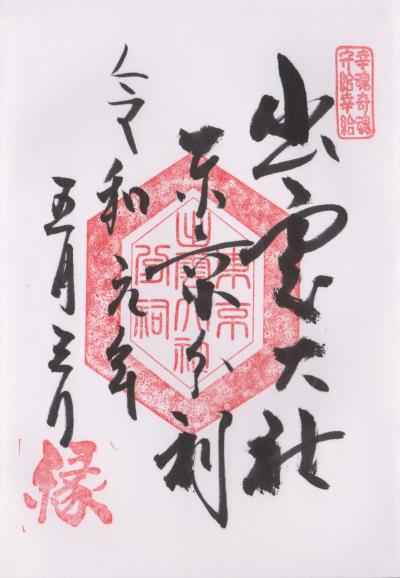 幸魂奇魂
守給幸給
出雲大社
東京分祠
令和元年
五月三日
東京
出雲大社
分祠
縁